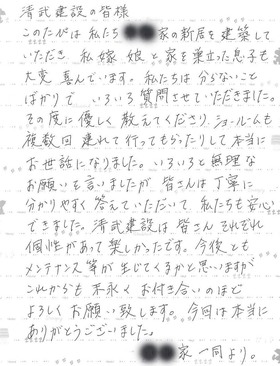 清武建設の皆様
このたびは 私たち ●●家の新居を建築して
いただき 私 嫁 娘と家を巣立った息子も
大変 喜んでいます。私たちは分らないこと
ばかりで いろいろ 質問させていただきました。
その度に優しく 教えてくださり、ショールームも
複数回 連れて行ってもらったりして本当に
お世話になりました。いろいろと無理な
お願いも言いましたが 皆さんは丁寧に
分かりやすく 答えていただいて、私たちも安心
できました。清武建設は 皆さん それぞれ
個性があって 楽しかったです。今後とも
メンテナンス等が生じてくるかと思いますが
これからも 末永く お付き合いのほど
よろしく お願い致します。今回は本当に
ありがとうございました。
●●家一同より。